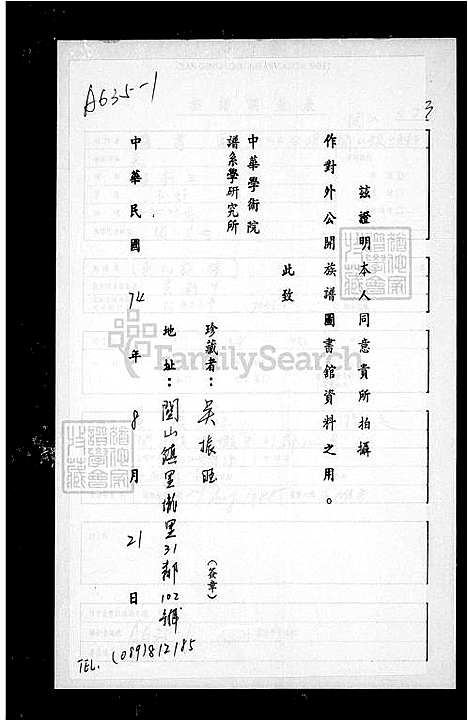 A635-1
3
茲證明本人同意貴所拍攝
作對外公開族譜圖書館資料之用。
此致
中華學術院
譜系學研究所
珍藏者：吳振旺（簽章）
地址：關山鎮里壠里31鄰102號
中華民國74年8月21日
TEL. (089)812185
FamilySearch